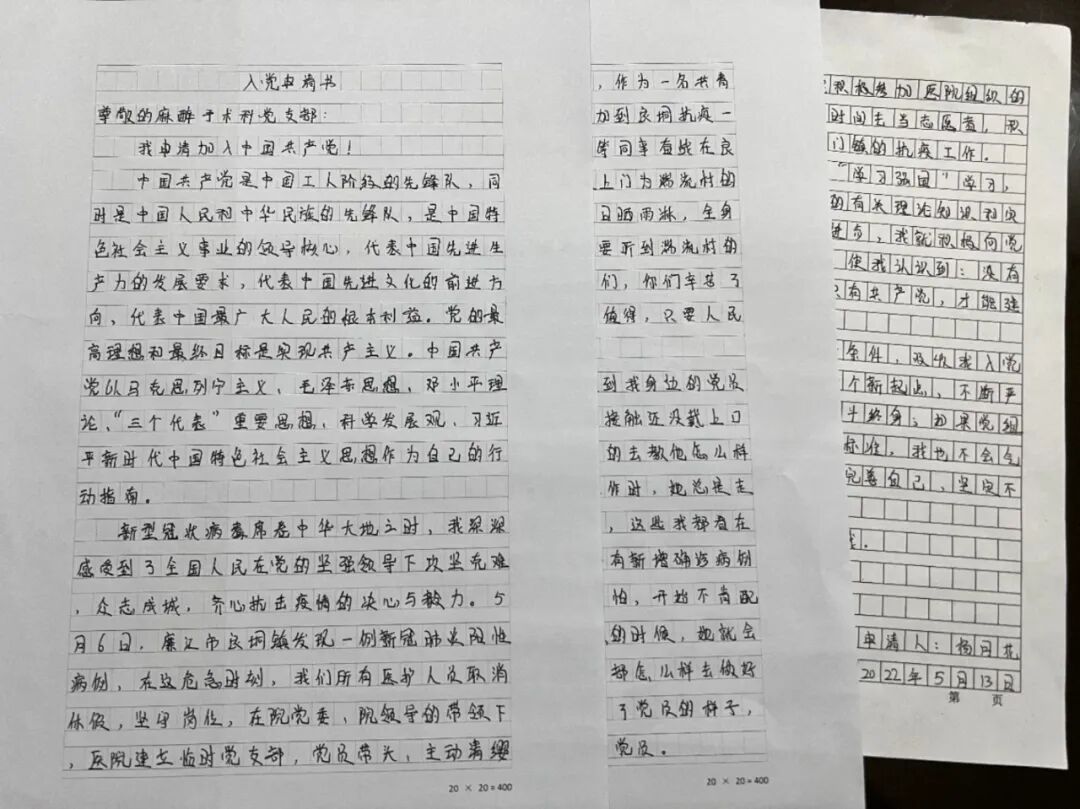 入党申请书
尊敬的麻醉手术科党支部：
我申请加入中国共产党！
中国共产党是中国工人阶级的先锋队，同
时是中国人民和中华民族的先锋队，是中国特
色社会主义事业的领导核心，代表中国先进生
产力的发展要求，代表中国先进文化的前进方
向，代表中国最广大人民的根本利益。党的最
高理想和最终目标是实现共产主义。中国共产
党以马克思列宁主义、毛泽东思想、邓小平理
论、“三个代表”重要思想、科学发展观、习近
平新时代中国特色社会主义思想作为自己的行
动指南。
新型冠状病毒席卷中华大地之时，我深深
感受到了全国人民在党的坚强领导下攻坚克难
，众志成城，齐心抗击疫情的决心与毅力。5
月6日，廉江市良垌镇发现一例新冠肺炎阳性
病例，在这危急时刻，我们所有医护人员取消
休假，坚守岗位，在院党委、院领导的带领下
，医院建立临时党支部，党员带头，主动请缨
20 × 20 = 400
，作为一名共青
加到良垌抗疫一
等同事奋战在良
上门为湍流村的
日晒雨淋，全身
要听到湍流村的
们，你们辛苦了
值得，只要人民
到我身边的党员
接触近没戴上口
的去教他怎么样
作时，她总是走
，这些我都看在
有新增确诊病例
怕，开始不肯配
的时候，她就会
都怎么样去做好
了党员的样子，
党员。
20 × 20 = 400
积极参加医院组织的
时间去当志愿者，积
门镇的抗疫工作。
“学习强国”学习，
的有关理论知识和实
进步，我就积极向党
使我认识到：没有
只有共产党，才能建
条件，吸收我入党
个新起点，不断严
斗终身；如果党组
标准，我也不会气
完善自己，坚定不
申请人：杨月花
2022年5月13日
第 页